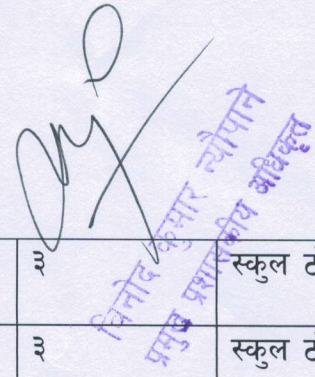 विनोद कुमार न्यौपाने
प्रमुख प्रशासकीय अधिकृत
३ स्कुल ट
३ स्कुल ट